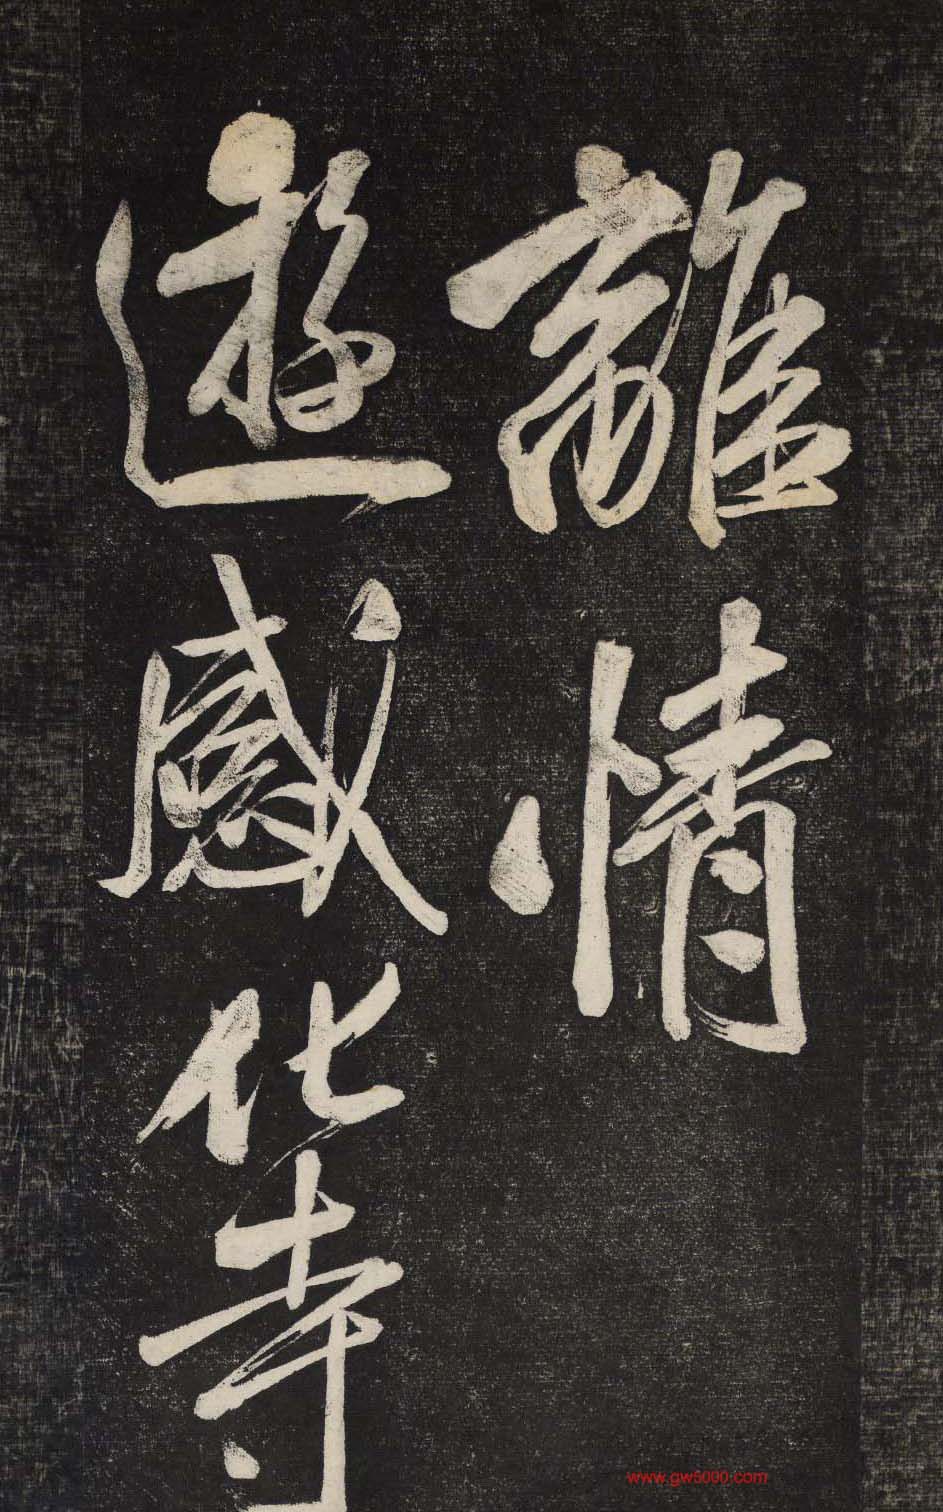 離情
遊感化寺
www.gw6000.com